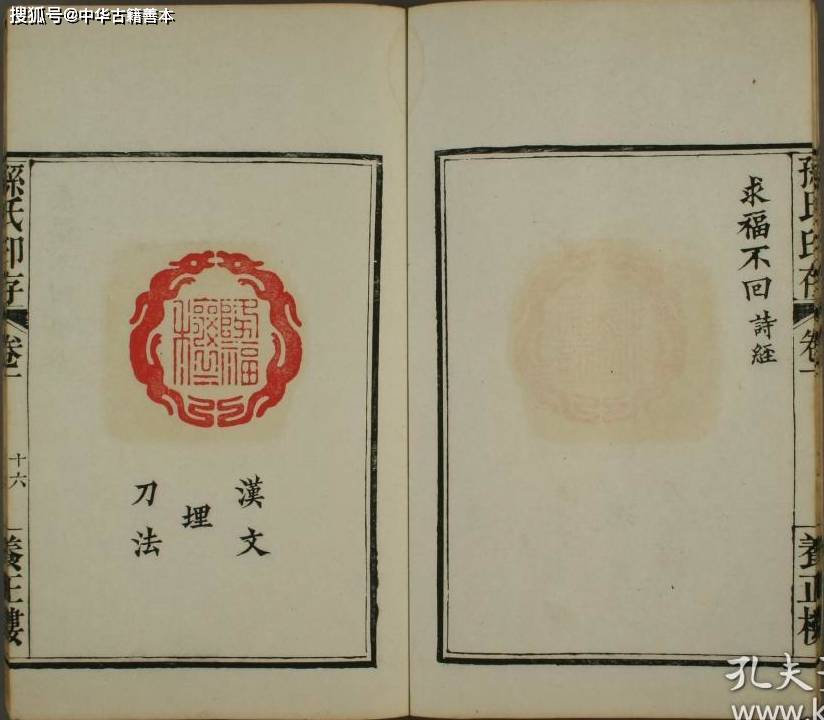 搜狐号@中华古籍善本
求福不回 詩經
孫氏印存
卷一
養正樓
漢文
埋
刀法
孫氏印存
卷一
十六
養正樓
孔夫